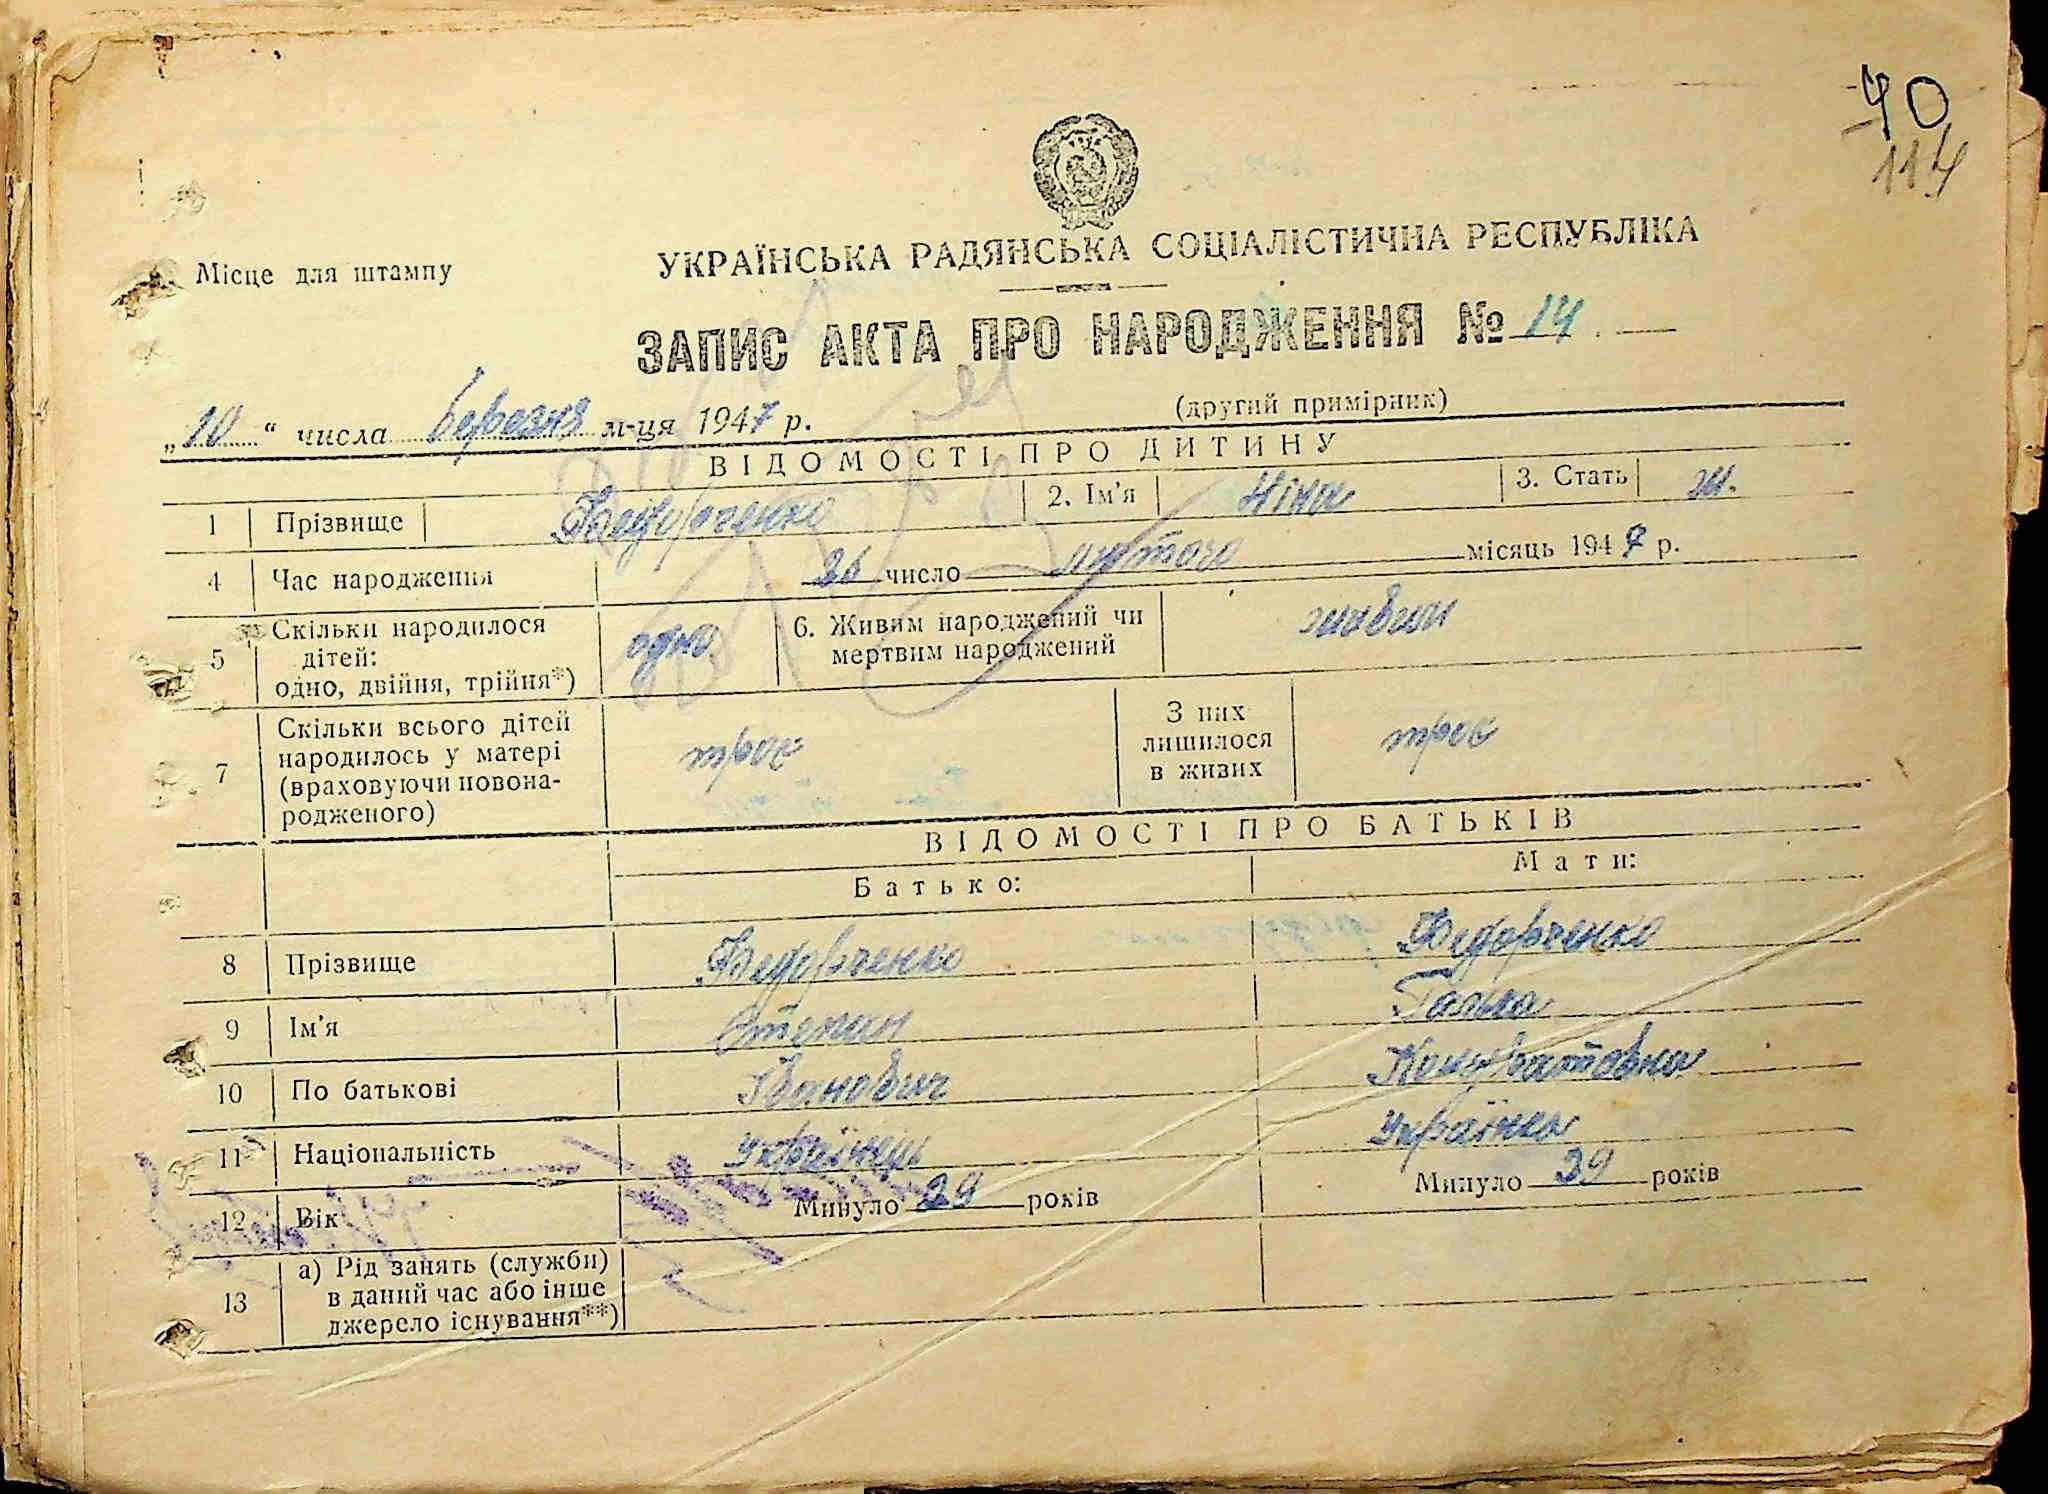 40
114
Місце для штампу
УКРАЇНСЬКА РАДЯНСЬКА СОЦІАЛІСТИЧНА РЕСПУБЛІКА
ЗАПИС АКТА ПРО НАРОДЖЕННЯ № 14
(другий примірник)
„10“ числа березня м-ця 1947 р.
ВІДОМОСТІ ПРО ДИТИНУ
1 Прізвище Федорченко 2. Ім'я Ніна 3. Стать ж.
4 Час народження 26 число лютого місяць 1947 р.
5 Скільки народилося дітей: одно, двійня, трійня*) одно 6. Живим народжений чи мертвим народжений живим
7 Скільки всього дітей народилось у матері (враховуючи новонародженого) троє З них лишилося в живих троє
ВІДОМОСТІ ПРО БАТЬКІВ
Батько: Мати:
8 Прізвище Федорченко Федорченко
9 Ім'я Степан Галька
10 По батькові Іванович Кондратовна
11 Національність Українець Українка
12 Вік Минуло 29 років Минуло 39 років
13 а) Рід занять (служби) в даний час або інше джерело існування**)